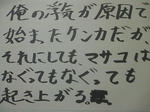 俺の浮気が原因で
始まったケンカだが
それにしても、マサコは
なぐてもなぐっても
起き上がる。